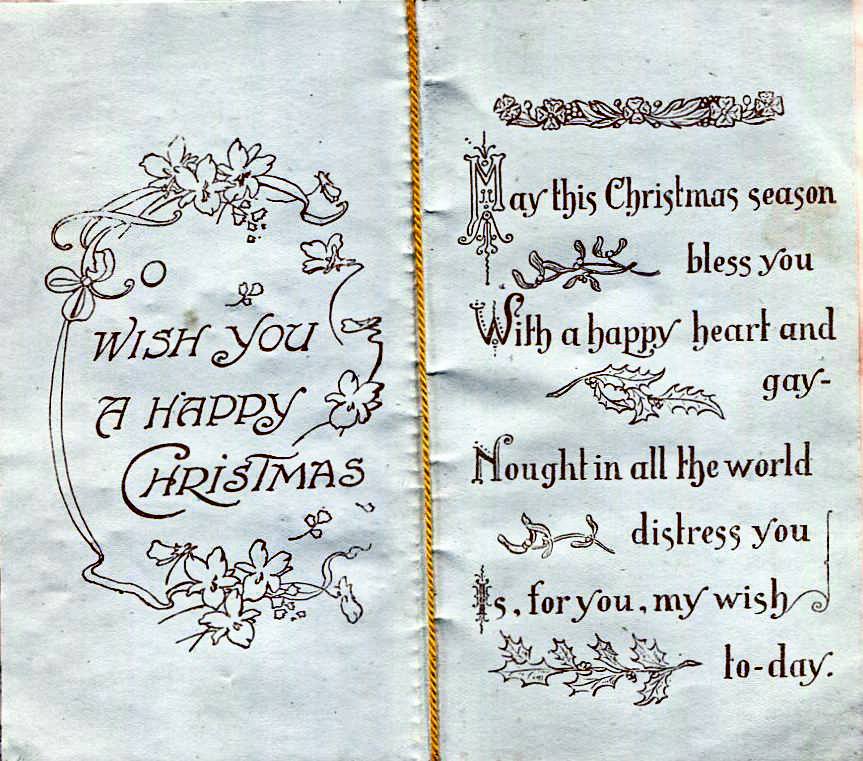 TO
WISH YOU
A HAPPY
CHRISTMAS
May this Christmas season
bless you
With a happy heart and
gay-
Nought in all the world
distress you
Is, for you, my wish
to-day.